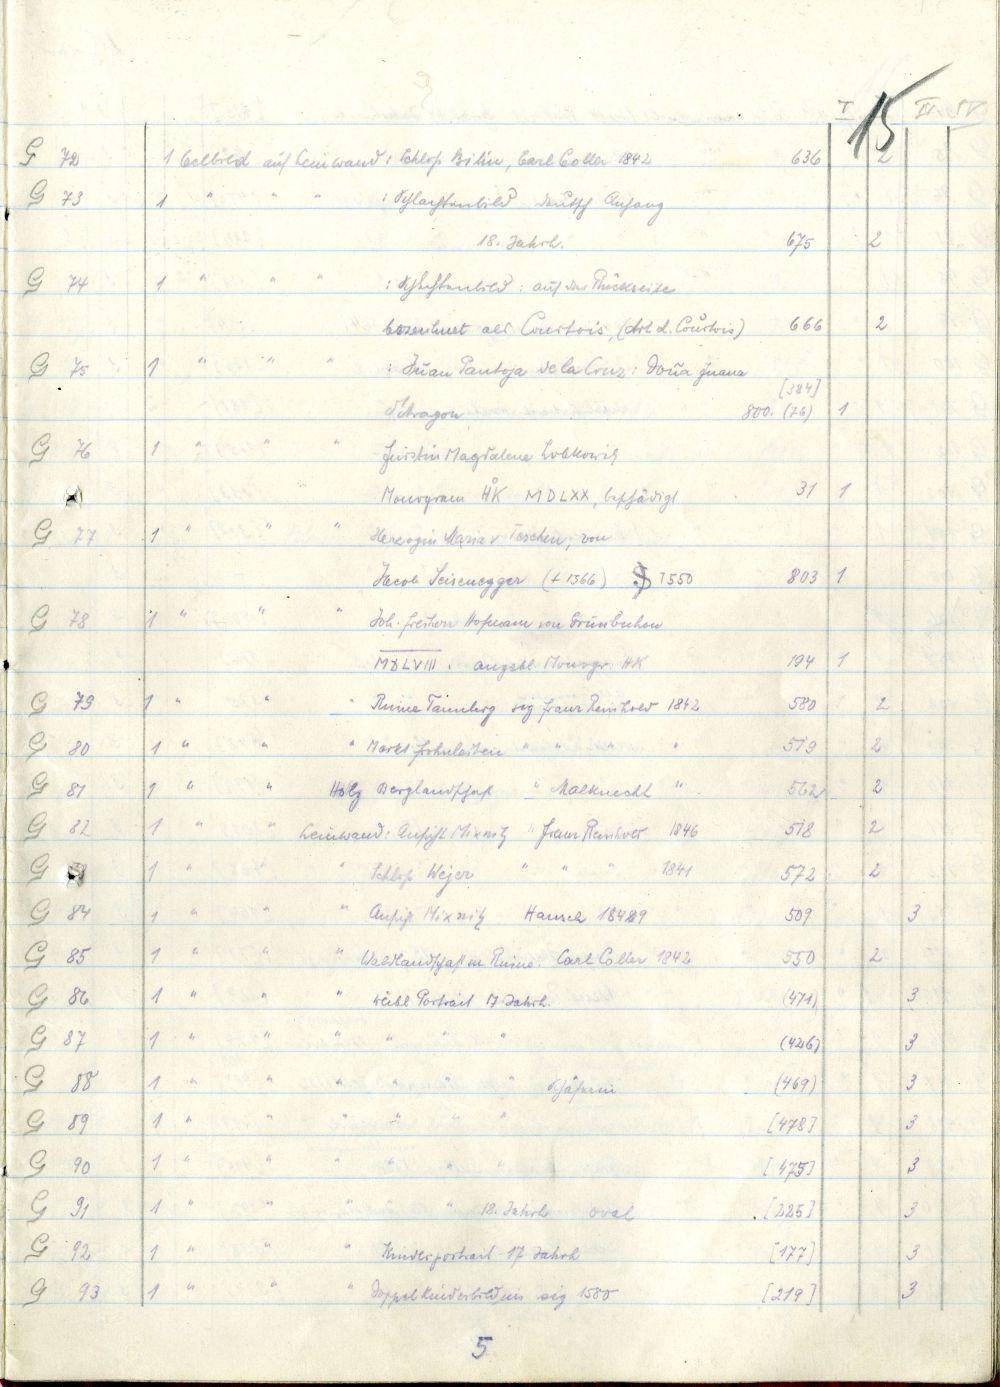 15
I III IV
G 72 1 Oelbild auf Leinwand: Schloß Bilin, Carl Coller 1842 636 2
G 73 1 " " " : Schlachtenbild deutsch Anfang
18. Jahrh. 675 2
G 74 1 " " " : Schlachtenbild: auf der Rückseite
bezeichnet als Courtois, (Art d. Courtois) 666 2
G 75 1 " " " : Juan Pantoja de la Cruz: Doña Juana
[384]
d'Aragon 800. (76) 1
G 76 1 " " " Fürstin Magdalene Lobkowitz
Monogram HK MDLXX, beschädigt 31 1
G 77 1 " " " Herzogin Maria v Teschen, von
Jacob Seisenegger (+ 1566) 1550 803 1
G 78 1 " " " Joh. Freiherr Hofmann von Grünbuchen
MDLVIII. angebl. Monogr. HK 194 1
G 79 1 " " " Ruine Tannberg sig Franz Reinhold 1842 580 2
G 80 1 " " " Markt Frohnleiten " " " " 519 2
G 81 1 " " Holz Berglandschaft " Malknecht " 562 2
G 82 1 " " Leinwand: Ansicht Mixnitz " Franz Reinhold 1846 518 2
G 1 " " " Schloß Weyer " " " 1841 572 2
G 84 1 " " " Ansicht Mixnitz Hansch 1849 509 3
G 85 1 " " " Waldlandschaft m Ruine. Carl Coller 1842 550 2
G 86 1 " " " weibl Portrait 17 Jahrh. (471) 3
G 87 1 " " " " " " (426) 3
G 88 1 " " " " " " Schäferin (469) 3
G 89 1 " " " " " " [478] 3
G 90 1 " " " " " [475] 3
G 91 1 " " " " 18. Jahrh oval [225] 3
G 92 1 " " " Kinderportrait 17 Jahrh [177] 3
G 93 1 " " " Doppelkinderbildnis sig 1580 [219] 3
5